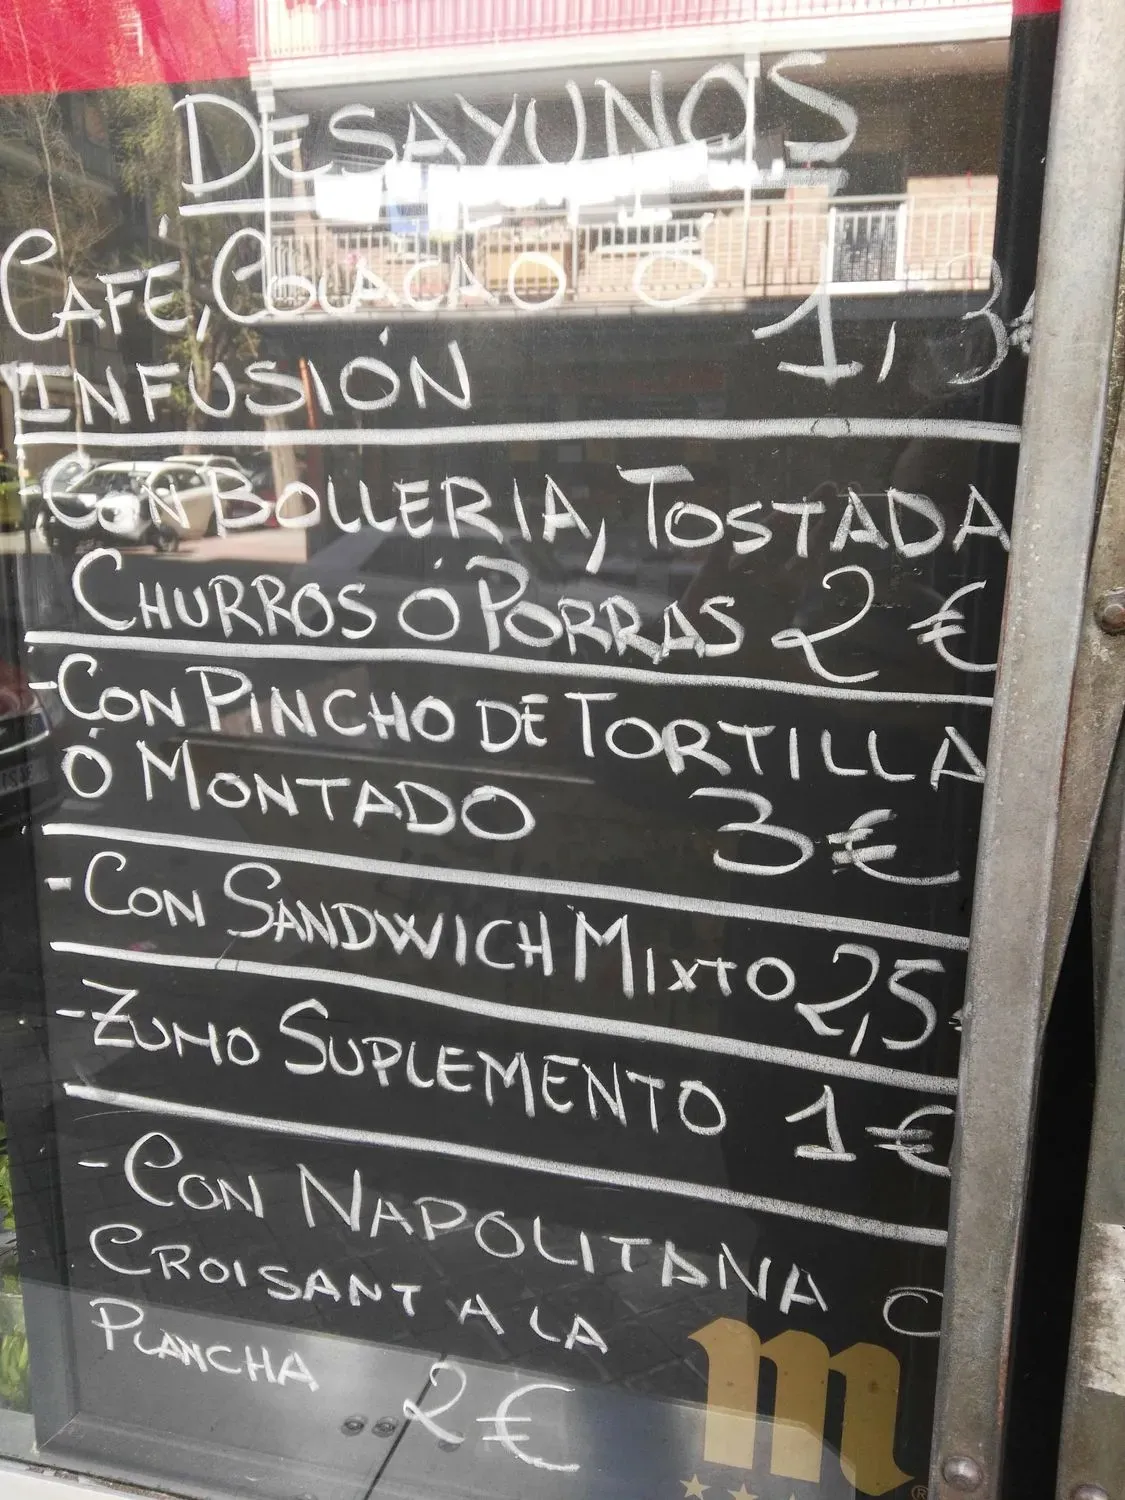 DESAYUNOS
CAFÉ, COLACAO Ó
INFUSIÓN 1,3
-CON BOLLERIA, TOSTADA
CHURROS Ó PORRAS 2 €
-CON PINCHO DE TORTILLA
Ó MONTADO 3€
-CON SANDWICH MIXTO 2,5
-ZUMO SUPLEMENTO 1€
-CON NAPOLITANA O
CROISANT A LA
PLANCHA 2€
m
®